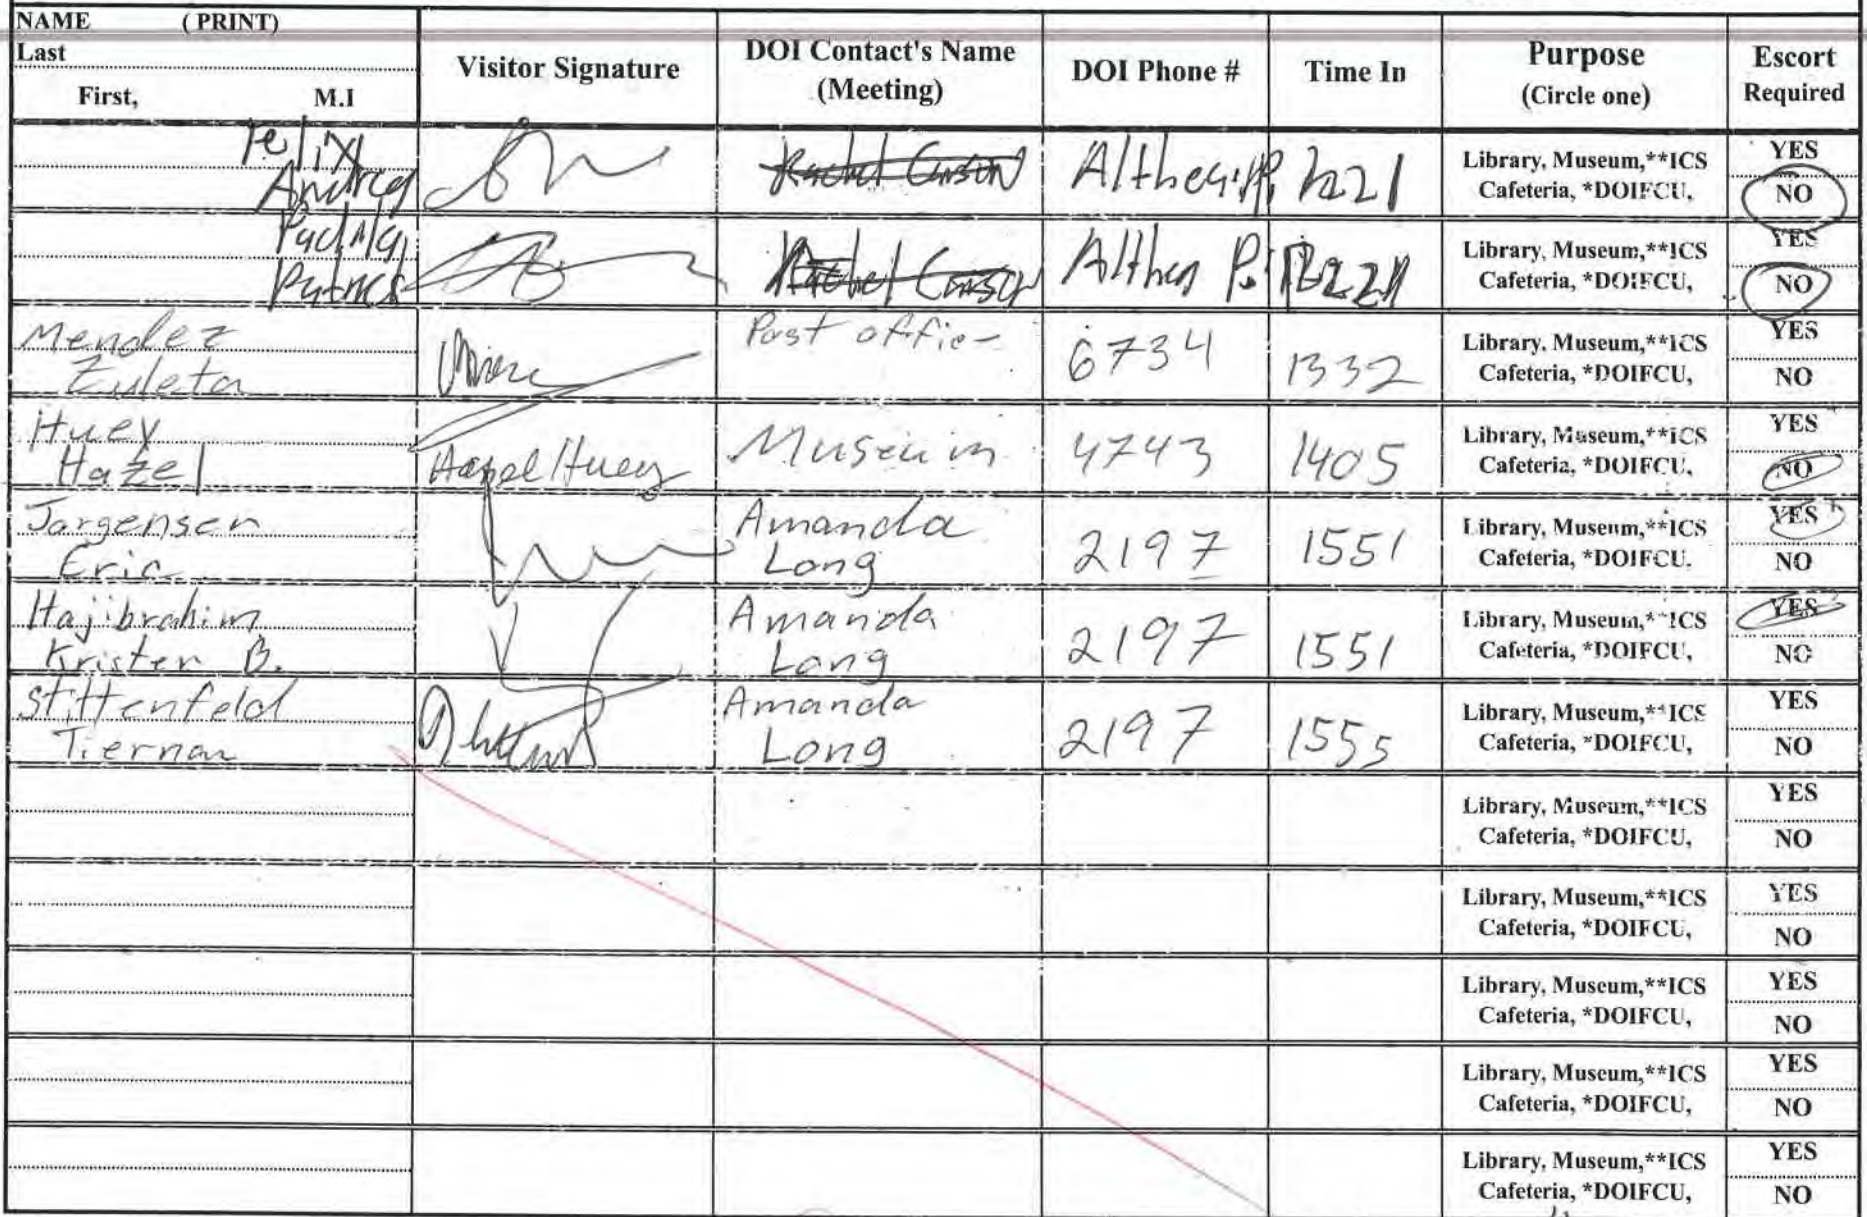 NAME (PRINT)
Last
First, M.I
Visitor Signature
DOI Contact's Name
(Meeting)
DOI Phone #
Time In
Purpose
(Circle one)
Escort
Required
Felix
Andrea
Rachel Carson
Althea P.
1221
Library, Museum,**ICS
Cafeteria, *DOIFCU,
YES
NO
Padilla
Rachel Carson
Althea P.
Library, Museum,**ICS
Cafeteria, *DOIFCU,
YES
NO
Mendez
Zuleta
Post office
6734
1332
Library, Museum,**ICS
Cafeteria, *DOIFCU,
YES
NO
Huey
Hazel
Hazel Huey
Museum
4743
1405
Library, Museum,**ICS
Cafeteria, *DOIFCU,
YES
NO
Jorgensen
Eric
Amanda
Long
2197
1551
Library, Museum,**ICS
Cafeteria, *DOIFCU,
YES
NO
Hajibrahim
Kristen B.
Amanda
Long
2197
1551
Library, Museum,**ICS
Cafeteria, *DOIFCU,
YES
NO
Stittenfeld
Tiernan
Amanda
Long
2197
1555
Library, Museum,**ICS
Cafeteria, *DOIFCU,
YES
NO
Library, Museum,**ICS
Cafeteria, *DOIFCU,
YES
NO
Library, Museum,**ICS
Cafeteria, *DOIFCU,
YES
NO
Library, Museum,**ICS
Cafeteria, *DOIFCU,
YES
NO
Library, Museum,**ICS
Cafeteria, *DOIFCU,
YES
NO
Library, Museum,**ICS
Cafeteria, *DOIFCU,
YES
NO